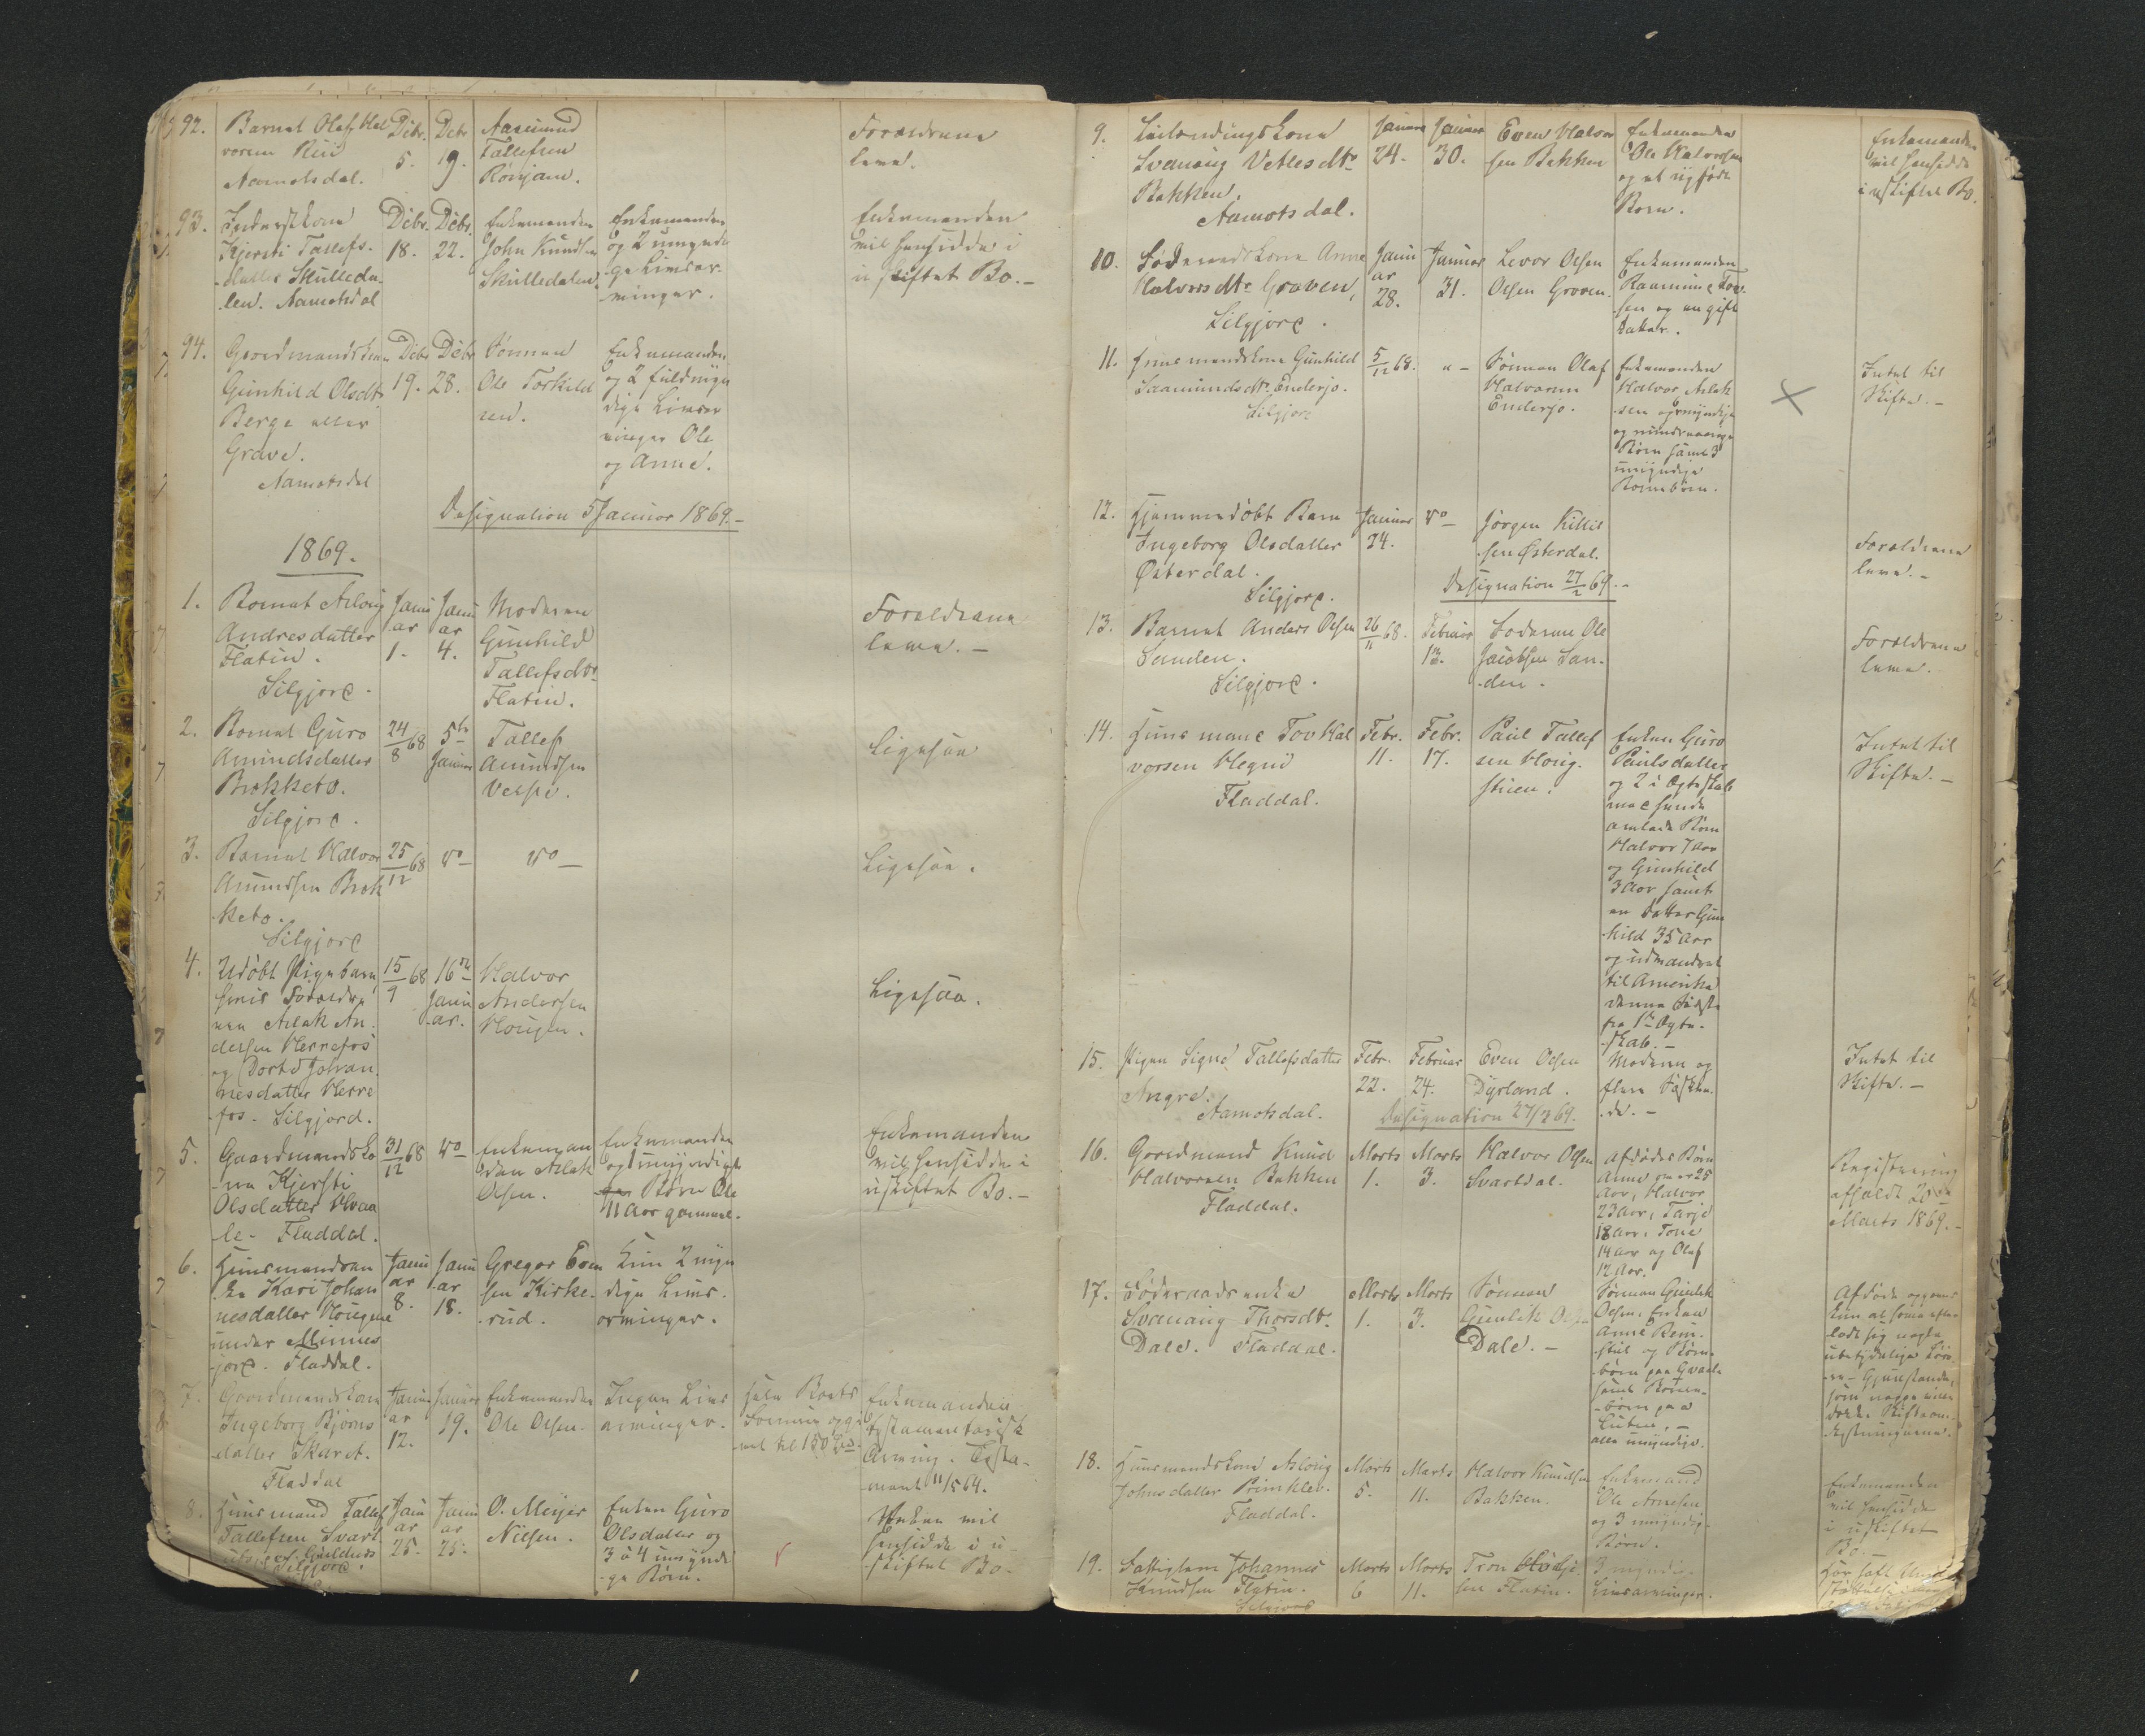 92.
Barnet Olaf Hal
vorsen
Aamotsdal.
Debr.
5.
Debr
19.
Aasmund
Tallefsen
Rønjom.
Forældrene
leve.
93.
Inderstkone
Kjersti Tallefs-
datter Skulleda-
len. Aamotsdal
Debr.
18.
Debr.
22.
Enkemanden
John Knudsen
Skulledalen
Enkemanden
og 2 umyndi
ge Livsar-
vinger.
Enkemanden
vil hensidde i
uskiftet Bo.-
94.
Gaardmandskone
Gunhild Olsdtr
Berge eller
Grave.
Aamotsdal
Debr
19.
Debr
28.
Sønnen
Ole Torkild
sen.
Enkemanden
og 2 fuldmyn
dige Livsar
vinger Ole
og Anne.
Designation 5 Januar 1869.-
1869.
1.
Barnet Aslaug
Andresdatter
Flatin.
Silgjord.
Janu
ar
1.
Janu
ar
4.
Moderen
Gunhild
Tallefsdtr
Flatin.
Forældrene
leve.-
2.
Barnet Guro
Amundsdatter
Brokketo.
Silgjord.
24/8 68
5te
Januar
Tallef
Amundsen
Ligesaa
3.
Barnet Halvor
Amundsen Brok
keto.
Silgjord
25/12 68
do
do
Ligesaa.
4.
Udøbt Pigebarn
hvis Forældre
ere Aslak An-
dersen Herrefos
og Dorte Johan
nesdatter Herre
fos. Silgjord.
15/9 68
16de
Janu
ar.
Halvor
Andersen
Haugen.
Ligesaa.
5.
Gaardmandsko
ne Kjersti
Olsdatter Hvaa
le. Fladdal.
31/12 68
do
Enkeman
den Aslak
Olsen.
Enkemanden
og 1 umyndigt
Barn Ole
11 Aar gammel.
Enkemanden
vil hensidde i
uskiftet Bo.-
6.
Husmandsen
ke Kari Johan
nesdatter Haugene
under Minnes
jord. Fladdal.
Janu
ar
8.
Janu
ar
18.
Gregar Even
sen Kirke-
rud.
Kun 2 myn
dige Livs-
arvinger.
7.
Gaardmandskone
Ingeborg Bjørns
datter Skaret.
Fladdal
Janu
ar
12.
Januar
19.
Enkemanden
Ole Olsen.
Ingen Livs
arvinger.
hele Boets
Formue opgi
vet til 150
Enkemanden
testamentarisk
Arving. Testa-
ment 11/5 64.
8.
Husmand Tallef
Tallefsen Svart
Silgjord.
Janu
ar
25.
Janu
ar
25.
O. Meyer
Nilsen.
Enken Guro
Olsdatter og
3 à 4 umyndi
ge Børn.
Enken vil
hensidde i u-
skiftet Bo.
9.
Leilændingskone
Svanaug Vetlesdtr
Bakken.
Aamotsdal.
Januar
24.
Januar
30.
Even Halvor
sen Bakken
Enkemanden
Ole Halvorsen
og et nyfødt
Barn.
Enkemanden
vil hensidde
i uskiftet Bo.
10.
Anne
Halvorsdtr Graven,
Silgjord.
Janu
ar
28.
Januar
31.
Levor Olsen
Olsen Graven.
Enkemanden
og en gift
Datter.
11.
Husmandskone Gunhild
Saamundsdtr. Endersjo.
Silgjord
5/12 68.
"-
Sønnen Olaf
Halvorsen
Endersjo.
Enkemanden
Halvor Aslak
sen og myndige
og mindreaarige
Børn samt 3
umyndige
Børnebørn.
Intet til
Skifte.-
12.
Hjemmedøbt Barn
Ingeborg Olsdatter
Østerdal.
Silgjord.
Januar
24.
do
Jørgen Kittil
sen Østerdal.
Forældrene
leve.-
Designation 27/2 69.-
13.
Barnet Anders Olsen
Sanden.
Silgjord.
26/11 68.
Februar
13.
Faderen Ole
Jacobsen San-
den.
Forældrene
leve.
14.
Husmand Tov Hal
vorsen Hegni
Fladdal.
Febr.
11.
Febr.
17.
Paul Tallef
sen Haug-
stuen.
Enken Guro
Paulsdatter
og 2 i Ægteskab
med hende
avlede Børn
Halvor 7 Aar
og Gunhild
3 Aar samt
en Datter Gun
hild 35 Aar
og udvandret
til Amerika
denne sidste
fra 1ste Ægte-
skab.-
Intet til
Skifte.-
15.
Pigen Signe Tallefsdatter
Aamotsdal.
Febr.
22.
Februar
24.
Even Olsen
Dyrland.
Moderen og
flere Søsken-
de.-
Intet til
Skifte.-
Designation 27/2 69.
16.
Gaardmand Knud
Halvorsen Bakken
Fladdal.
Marts
1.
Marts
3.
Halvor Olsen
Svartdal.
Afdødes Børn
Anne om er 25
Aar, Halvor
23 Aar, Tarje
18 Aar, Tone
14 Aar og Olaf
12 Aar.
Registrering
afholdt 20de
Marts 1869.-
17.
Føderaadsenke
Svanaug Thorsdtr.
Dale. Fladdal.
Marts
1.
Marts
3.
Sønnen
Gunlik Olsen
Dale.-
Sønnen Gunlik
Olsen, Enken
Anne
og Børne-
børn paa
samt Børne-
børn paa
alle umyndige.
18.
Husmandskone Aslaug
Johnsdatter Brinklev.
Fladdal.
Marts
5.
Marts
11.
Halvor Knudsen
Bakken.
Enkemand
Ole Arnesen
og 3 umyndige
Børn.
Enkemanden
vil hensidde
i uskiftet
Bo.-
19.
Fattiglem Johannes
Knudsen Flatin.
Silgjord
Marts
6
Marts
11.
sen Flatin.
3 myndige
Livsarvinger.